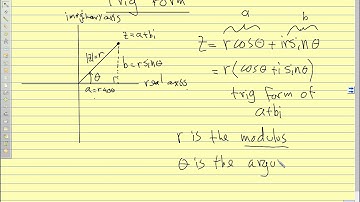 Trig Form
imaginary axis
z=a+bi
|z|=r
b=rsinθ
θ
real axis
a=rcosθ
a b
z=rcosθ+irsinθ
=r(cosθ+isinθ)
trig form of
a+bi
r is the modulus
θ is the argu